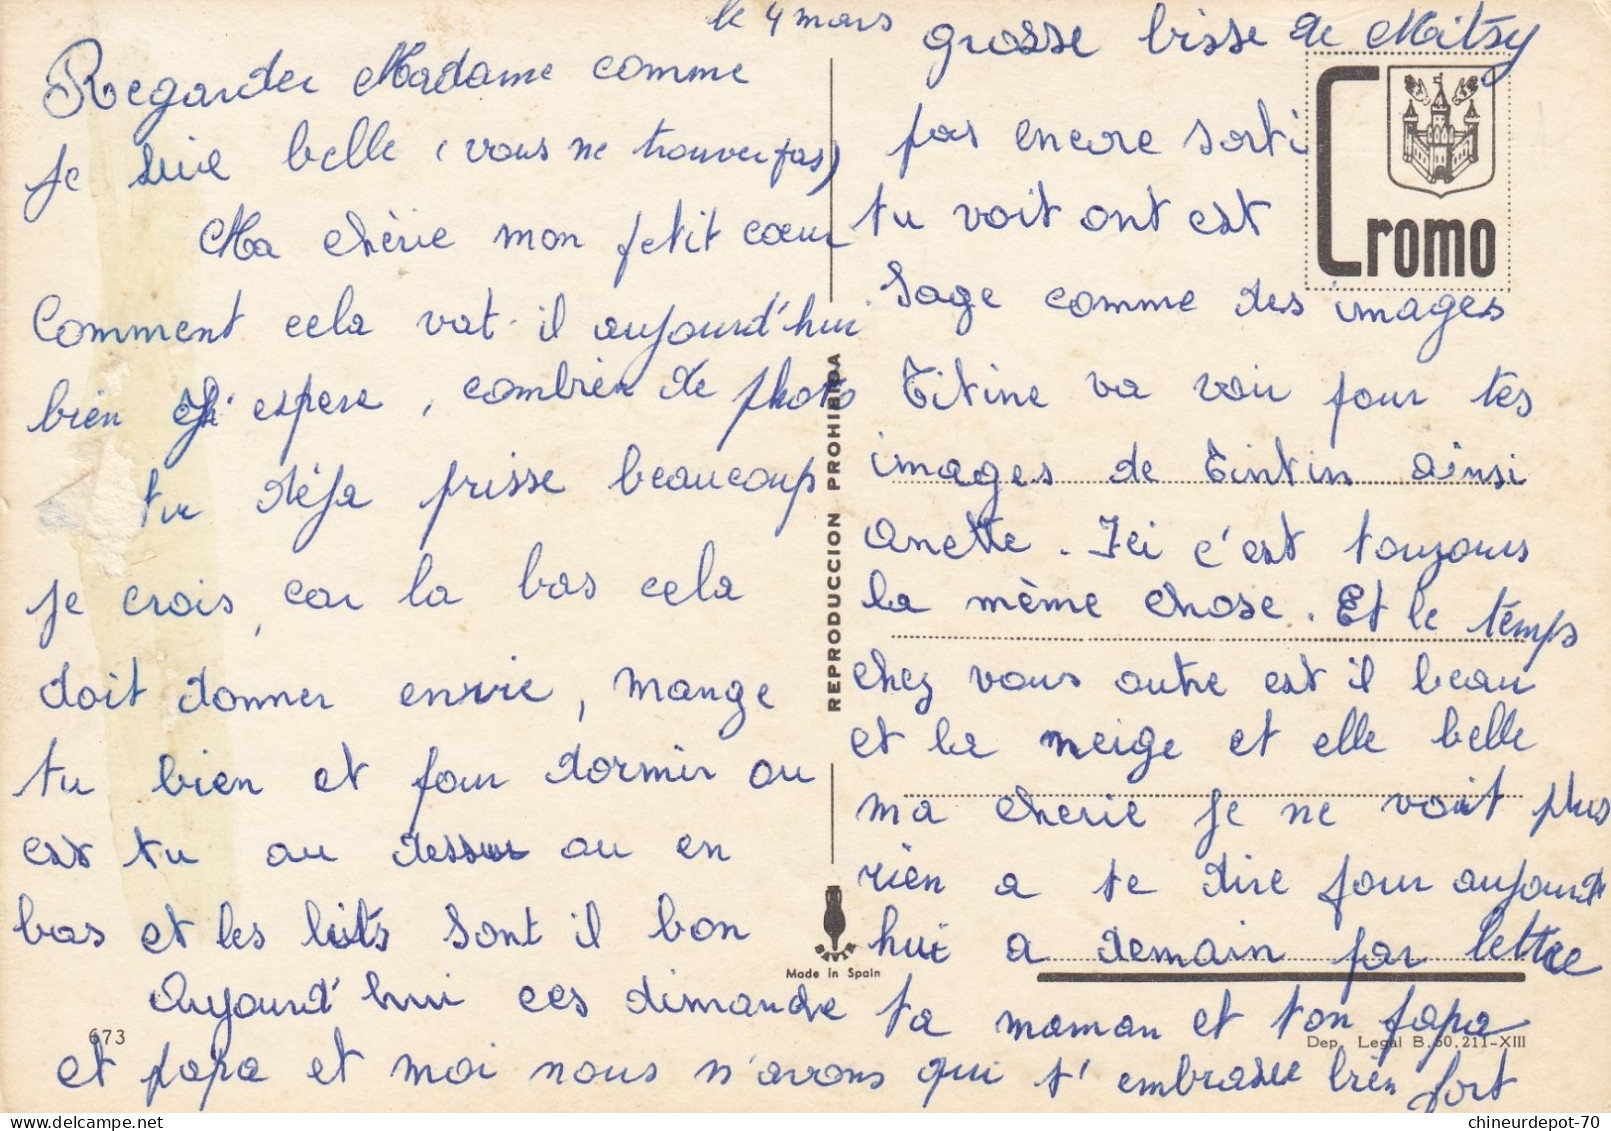 le 4 mars
Regarder Madame comme
je suie belle (vous ne trouver pas)
Ma chèrie mon petit cœur
Comment cela vat-il aujourd'hui
bien j'espere, combien de photo
tu dèja prisse beaucoup
je crois, car la bas cela
doit donner envie, mange
tu bien et pour dormir ou
est tu au dessus ou en
bas et les lits sont il bon
Aujourd'hui ces dimanche
et papa et moi nous n'avons
grosse bisse de Mitsy
pas encore sorti
tu voit ont est
sage comme des images
Titine va voir pour tes
images de Tintin ainsi
anette. Ici c'est toujours
la mème chose. Et le tèmps
chez vous autre est il beau
et la neige et elle belle
ma cherie je ne voit plus
rien a te dire pour aujourd
hui a demain par lettre
ta maman et ton papa
qui t'embrasse bien fort
Cromo
REPRODUCCION PROHIBIDA
SAVIR
Made in Spain
673
Dep. Legal B. 50.211-XIII
chineurdepot-70